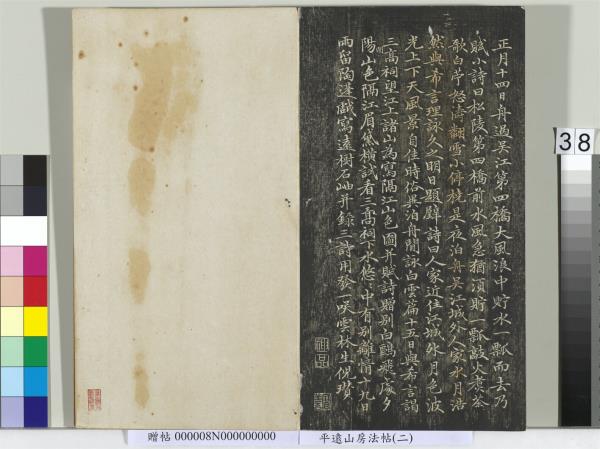 正月十四日舟過吳江第四橋大風浪中貯水一瓢而去乃
賦小詩曰松陵第四橋前水風急猶須貯一瓢敲火煮茶
歌白苧怒濤翻雪小停橈是夜泊舟吳江城外人家水月浩
然與希言理詠久之明日題壁詩曰人家近住江城外月色波
光上下天風景自佳時俗異泊舟閒詠白雲篇十五日與希言謁
三高祠望江上諸山為寫隔江山色圖并賦詩贈別白鷗飛處夕
陽山色隔江眉黛橫試看三高祠下水悠悠中有別離情十九日
雨留陽蓬戲寫遠樹石岫并錄三詩用發一咲雲林生倪瓚
38
贈帖 000008N000000000
平遠山房法帖(二)